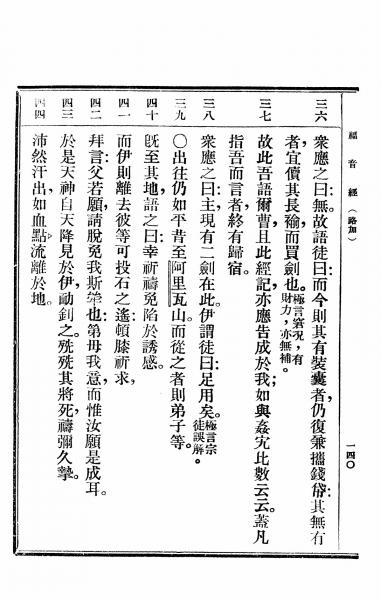 福音經（路加）
一四〇
三六 衆應之曰：無。故語徒曰：而今則其有裝囊者，仍復兼攜錢帒：其無有
者，宜債其長㡏而買劍也。極言窘况，有財力，亦無補。
三七 故此吾語爾曹，且此經記，亦應告成於我；如與姦宄比數云云。蓋凡
指吾而言者，終有歸宿。
三八 衆應之曰：主，現有二劍在此。伊謂徒曰：足用矣。極言宗徒誤解。
三九 〇出往仍如平昔至阿里瓦山。而從之者則弟子等。
四十 旣至其地，語之曰：幸祈禱免陷於誘惑。
四一 而伊則離去彼等可投石之遙，頓膝祈求，
四二 拜言：父若願，請脫免我斯
也：第毋我意，而惟汝願是成耳。
四三 於是天神自天降見於伊，勔釗之。殑殑其將死，禱彌久摯。
四四 沛然汗出，如血點流離於地。